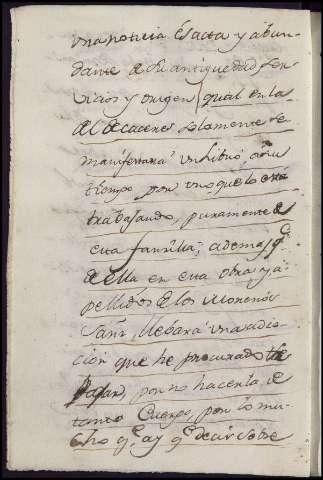 una noticia Esacta y abun-
dante de su antiguedad ser
vicios y origen qual en la
de caceres solamente se
manifestará un libro, a su
tiempo por uno que lo esta
trabajando, puramente de
esta familia; ademas q.e
de ella en esta obra y a
pellidos de los Morenos
llebará una adic
cion que he procurado
por no hacerla de
tanto Cuerpo, por lo mu-
cho q.e ay q.e decir sobre